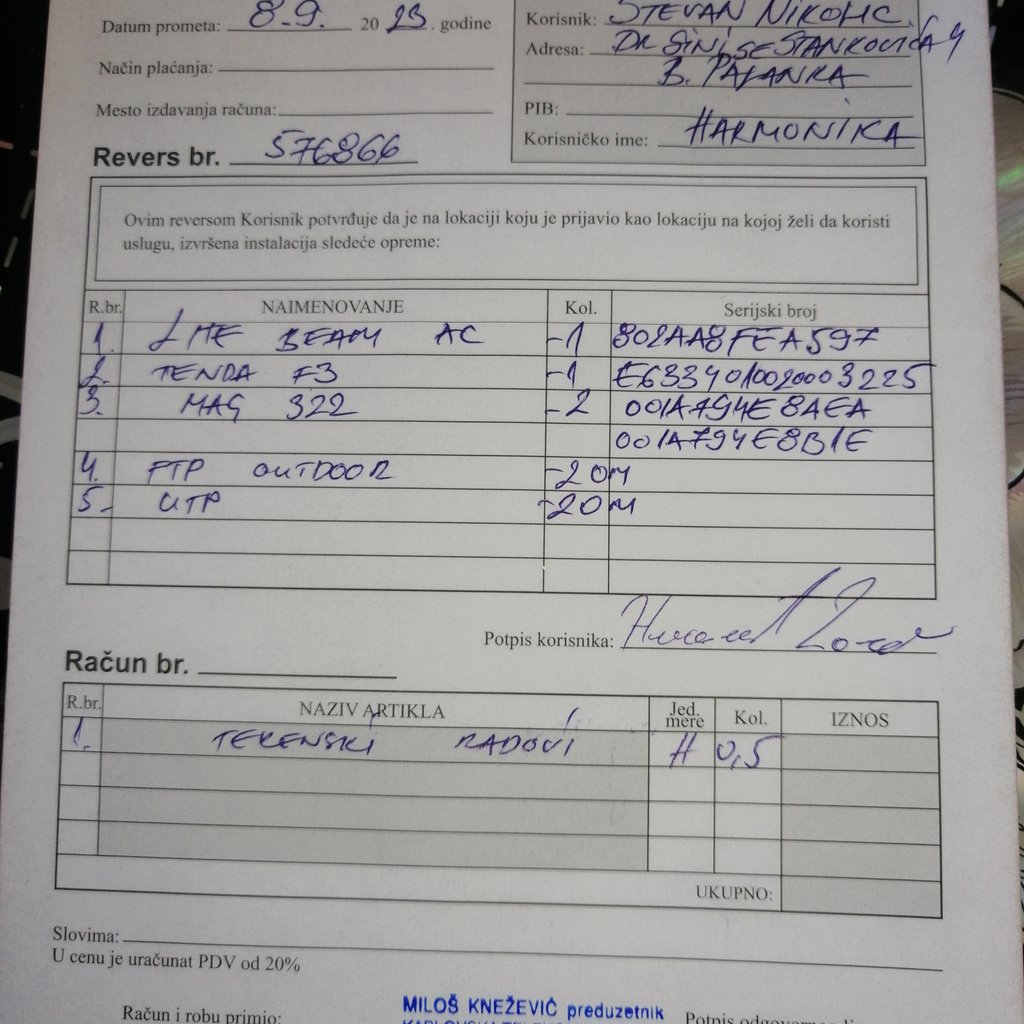 Datum prometa: 8.9. 20 23. godine
Način plaćanja:
Mesto izdavanja računa:
Revers br. 576866
Korisnik: STEVAN NIKOLIĆ
Adresa: DR SINIŠE STANKOVIĆA 4
B. PALANKA
PIB:
Korisničko ime: HARMONIKA
Ovim reversom Korisnik potvrđuje da je na lokaciji koju je prijavio kao lokaciju na kojoj želi da koristi
uslugu, izvršena instalacija sledeće opreme:
R.br. NAIMENOVANJE Kol. Serijski broj
1. LITE BEAM AC -1 802AA8FEA597
2. TENDA F3 -1 E6334010020003225
3. MAG 322 -2 001A794E8AEA
001A794E8B1E
4. FTP OUTDOOR -20M
5. UTP -20M
Potpis korisnika:
Račun br.
R.br. NAZIV ARTIKLA Jed. mere Kol. IZNOS
1. TERENSKI RADOVI H 0,5
UKUPNO:
Slovima:
U cenu je uračunat PDV od 20%
Račun i robu primio:
MILOŠ KNEŽEVIĆ preduzetnik